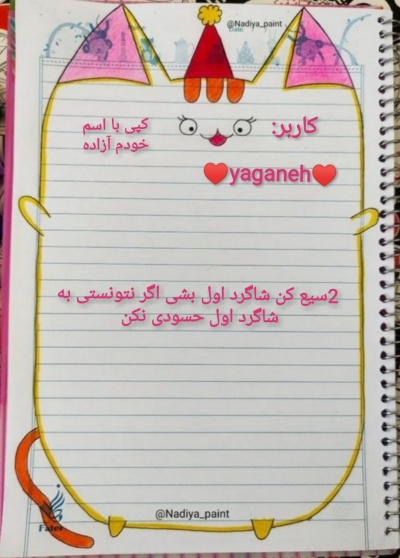 @Nadiya_paint
Date
کپی با اسم
خودم آزاده
کاربر:
♥yaganeh♥
2سیع کن شاگرد اول بشی اگر نتونستی به
شاگرد اول حسودی نکن
@Nadiya_paint
Fater